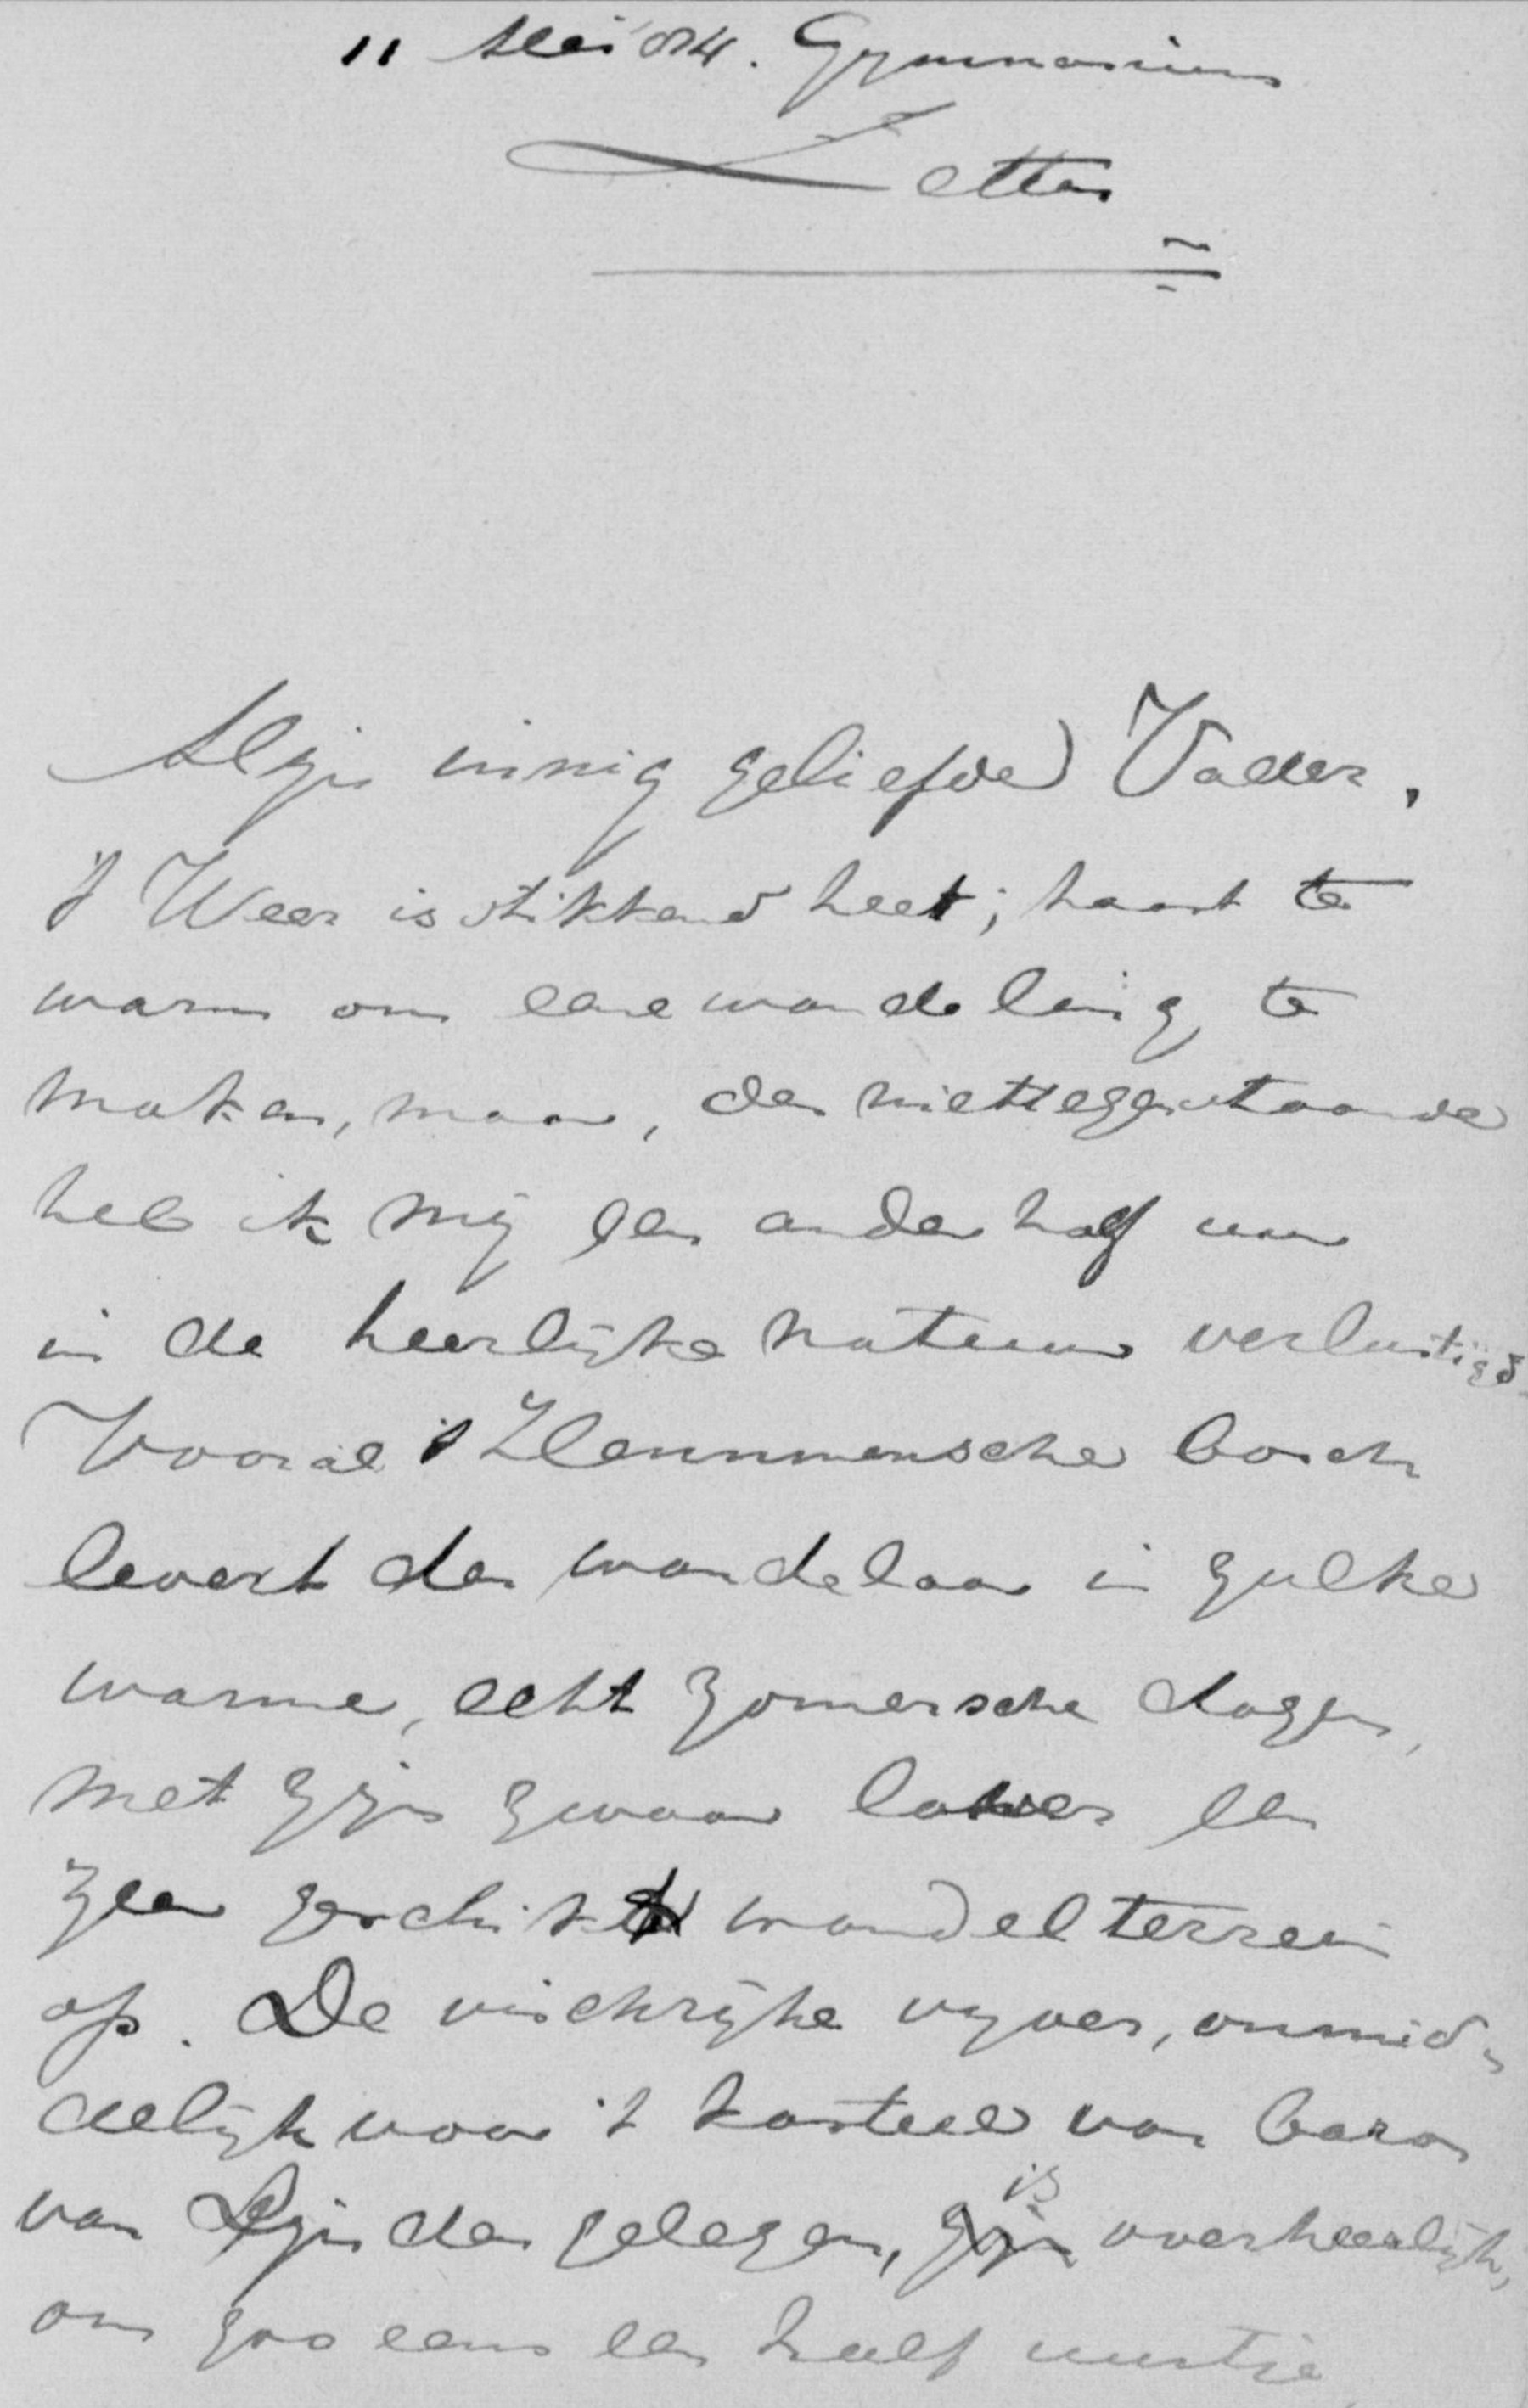 11 Mei '84. Gymnasium
Letter
Mijn innig geliefde Vader,
't Weer is stikkend heet; haast te
warm om eene wandeling te
maken, maar, des niettegenstaande
heb ik mij een anderhalf uur
in de heerlijke natuur verlustigd.
Vooral 't Hemmensche bosch
levert den wandelaar in zulke
warme, echt zomersche dagen,
met zijn zwaar lover een
zeer geschikt wandelterrein
op. De vischrijke vijver, onmid-
delijk voor 't kasteel van baron
van Lijnden gelegen, is overheerlijk,
om zoo eens een half uurtje